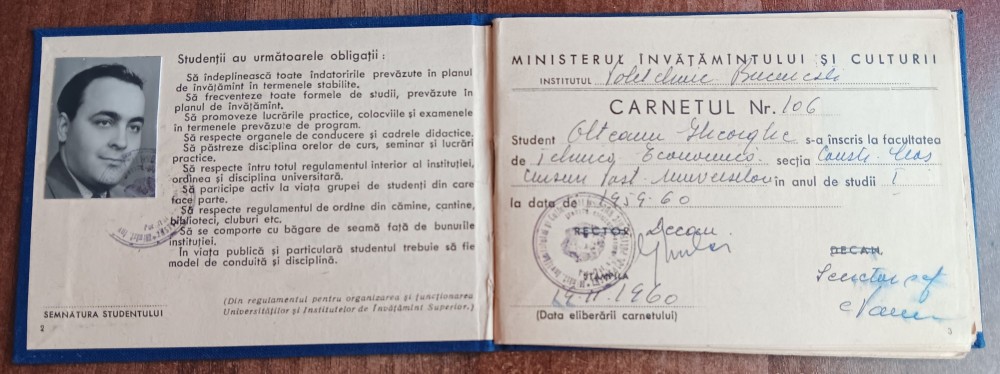 Studenții au următoarele obligații :
Să îndeplinească toate îndatoririle prevăzute în planul
de învățămînt în termenele stabilite.
Să frecventeze toate formele de studii, prevăzute în
planul de învățămînt.
Să promoveze lucrările practice, colocviile și examenele
în termenele prevăzute de program.
Să respecte organele de conducere și cadrele didactice.
Să păstreze disciplina orelor de curs, seminar și lucrări
practice.
Să respecte intru totul regulamentul interior al instituției,
ordinea și disciplina universitară.
Să participe activ la viața grupei de studenți din care
face parte.
Să respecte regulamentul de ordine din cămine, cantine,
biblioteci, cluburi etc.
Să se comporte cu băgare de seamă față de bunurile
instituției.
În viața publică și particulară studentul trebuie să fie
model de conduită și disciplină.
(Din regulamentul pentru organizarea și funcționarea
Universităților și Institutelor de Învățămînt Superior.)
SEMNĂTURA STUDENTULUI
2
MINISTERUL ÎNVĂȚĂMÎNTULUI ȘI CULTURII
INSTITUTUL Politehnic București
CARNETUL Nr. 106
Student Olteanu Gheorghe s-a înscris la facultatea
de Tehnica Economică secția Constr. Maș
în anul de studii I
la data de 1959-60
RECTOR Decan
DECAN,
Secretar șef
1960
(Data eliberării carnetului)
3